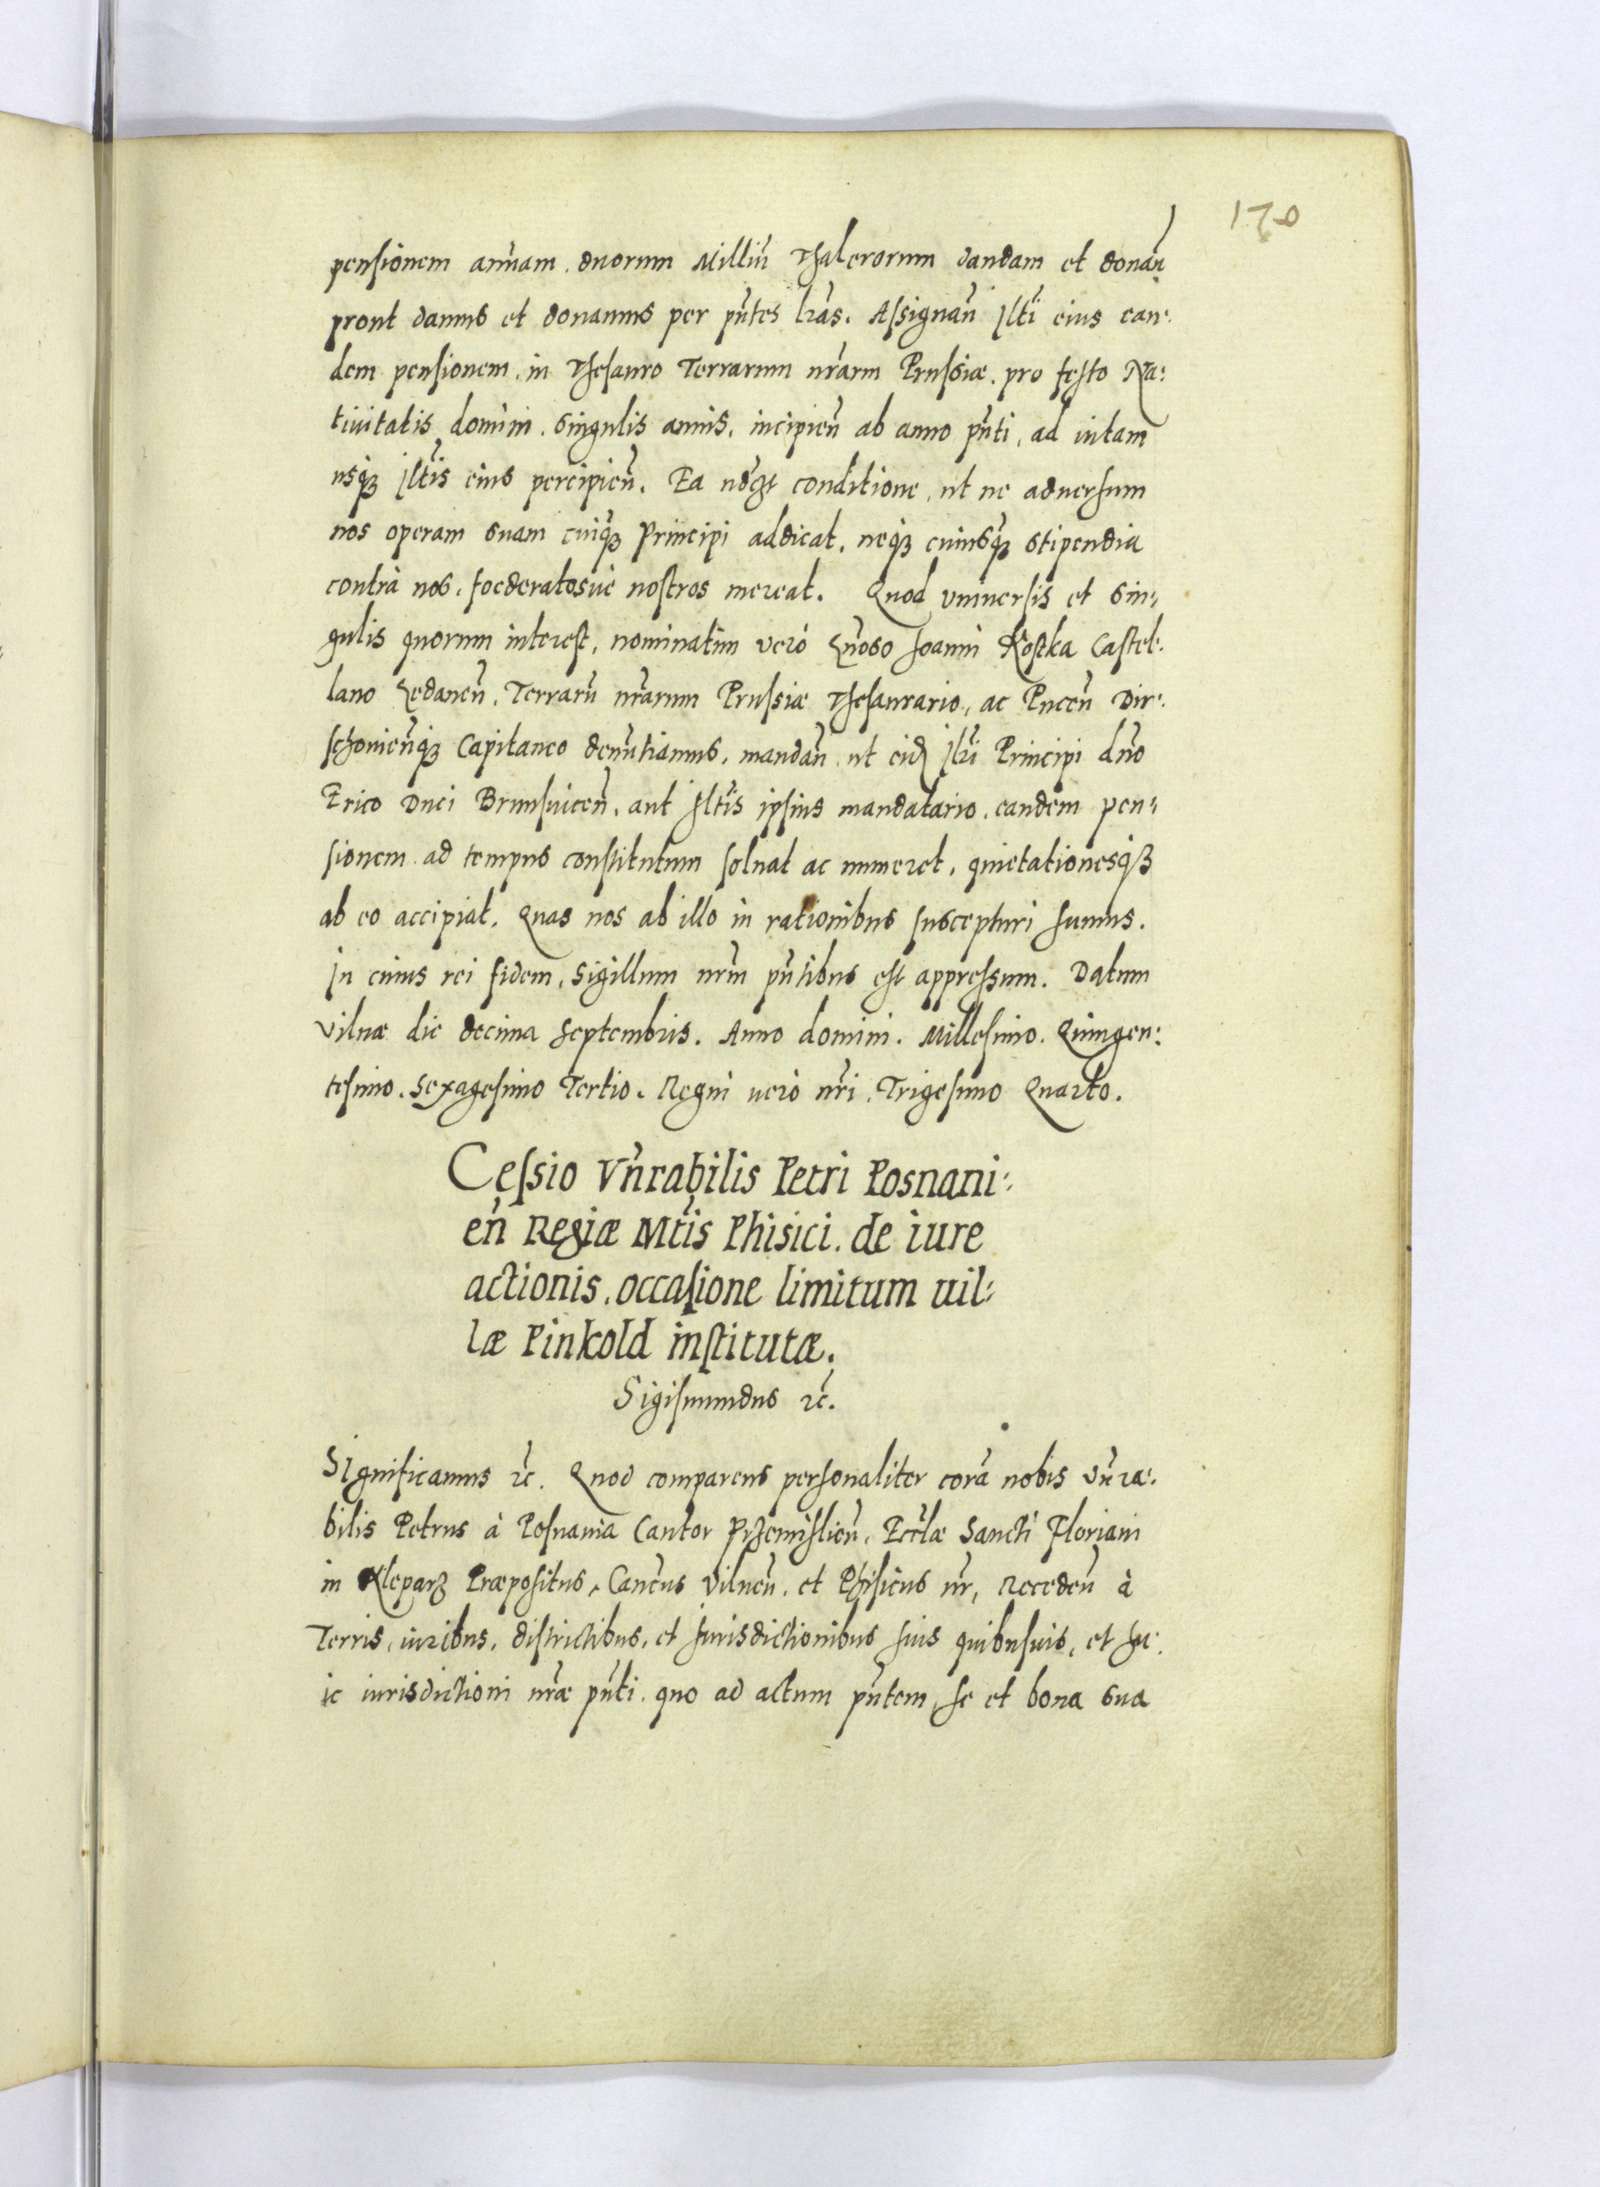 170
pensionem annuam. duorum Milliũ Thalerorum dandam et donañ
prout damus et donamus per pñtes lr̃as. Assignañ Jlti eius ean-
dem pensionem. in Thesauro Terrarum nr̃arm Prussiæ. pro festo Na-
tiuitatis domini. singulis annis. incipieñ ab anno pñti, ad uitam
usq3 Jltis eius percipieñ. Ea conditione, ut ne aduersum
nos operam suam cuiq3 Principi addicat. neq3 cuiusq3 stipendia
contrà nos, foederatosuè nostros mereat. Quod vniuersis et sin-
gulis quorum interest, nominatim verò Gñoso Joanni Kostka Castel-
lano Gedaneñ. Terrarũ nr̃arum Prussiæ Thesaurario, ac Puceñ Dir-
schouieñq3 Capitaneo denũtiamus, mandañ ut eid Jlri Principi dño
Erico Duci Brunsuiceñ. aut Jltis ipsius mandatario. eandem pen-
sionem ad tempus constitutum soluat ac numeret, quietationesq3
ab eo accipiat. Quas nos ab illo in rationibus suscepturi sumus.
In cuius rei fidem, Sigillum nr̃m pñtibus est appressum. Datum
Vilnæ die decima Septembris. Anno domini. Millesimo. Quingen-
tesimo. Sexagesimo Tertio. Regni uerò nr̃i. Trigesimo Quarto.
Cessio Vñrabilis Petri Posnani-
eñ Regiæ Mtis Phisici. de iure
actionis. occasione limitum uil-
læ Pinkold institutæ.
Sigismundus r̃c.
Significamus r̃c. Quod comparens personaliter corã nobis Vñra-
bilis Petrus à Posnania Cantor Przemislieñ. Eccłæ Sancti Floriani
in Kleparz Præpositus, Cañcus Vilneñ. et Phisicus nr̃, Recedeñ à
Terris, iuribus, districtibus, et Jurisdictionibus suis quibusuis, et hu-
ic iurisdictioni nr̃æ pñti. quo ad actum pñtem, se et bona sua